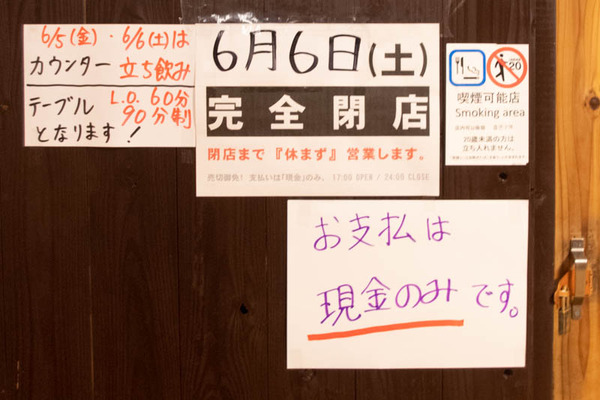 6/5(金)・6/6(土)は
カウンター 立ち飲み
テーブル L.O. 60分
90分制
となります!
6月6日(土)
完全閉店
閉店まで『休まず』営業します。
売切御免! 支払いは「現金」のみ。 17:00 OPEN / 24:00 CLOSE
20
喫煙可能店
Smoking area
20歳未満の方は
立ち入れません。
お支払は
現金のみです。